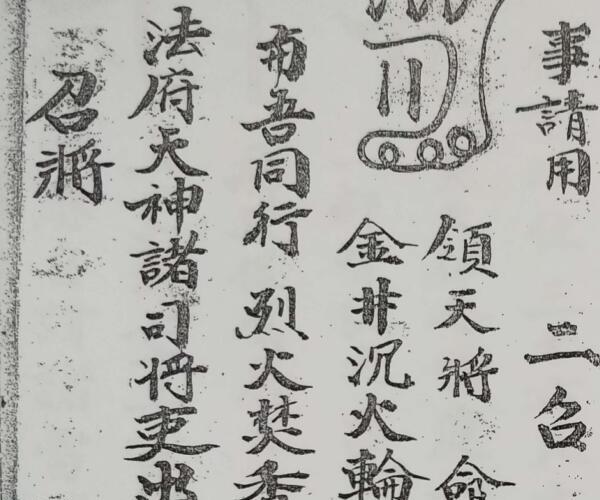 事請用 二召
領天將 命
金井沉火輪
吾同行 烈火焚香
法府天神諸司将吏
召將